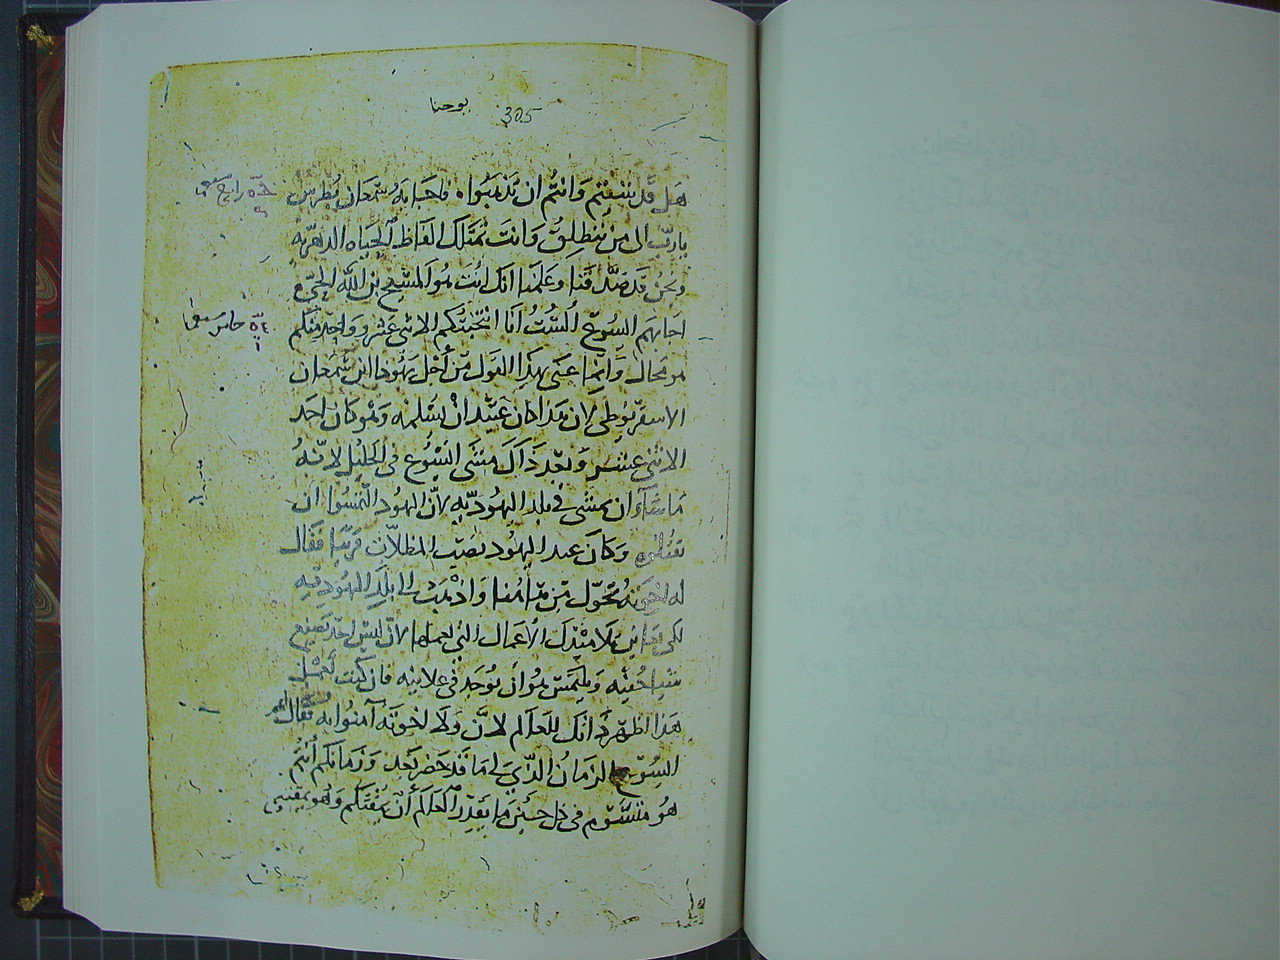 يوحنا
305
هل قد شيتم وانتم ان تذهبوا. فاجابه شمعان بطرس
يا ربّ الى من ننطلق وانت تمتلك الفاظ الحياه الدهريه
ونحن قد صدّقنا وعلمنا انك انت هو المسيح بن الله الحيّ
اجابهم اليسوع الستُ انا انتخبتكم الاثني عشر وواحد منكم
هو محال وانما عنى بهذا القول من أجل يهوذا ابن شمعان
الاسقريوطي لان هذا كان عتيد ان يسلمه وهو كان احد
الاثني عشر وبعد ذاك مشى اليسوع في الجليل لانهُ
ما شاء ان يمشى في بلد اليهوديه لانّ اليهود التمسوا ان
يقتلوه وكان عيد اليهود نصب المظلات قريبًا فقال
له اخوته تحوّل من هاهنا واذهب الى بلد اليهوديه
لكي يعاين تلاميذك الأعمال التي تعملها لانّ ليس احد يصنع
شيا خفيه ويلتمس هو أن يوجد في علانيه فان كنت تعمل
هذا اظهر ذاتك للعالم لانّ ولا اخوته آمنوا به فقال لهم
اليسوع الزمان الذي لي ما قد حضر بعد وزمانكم أنتم
هو في كل حين ما يقدر العالم أن يمقتكم وهو يمقتني